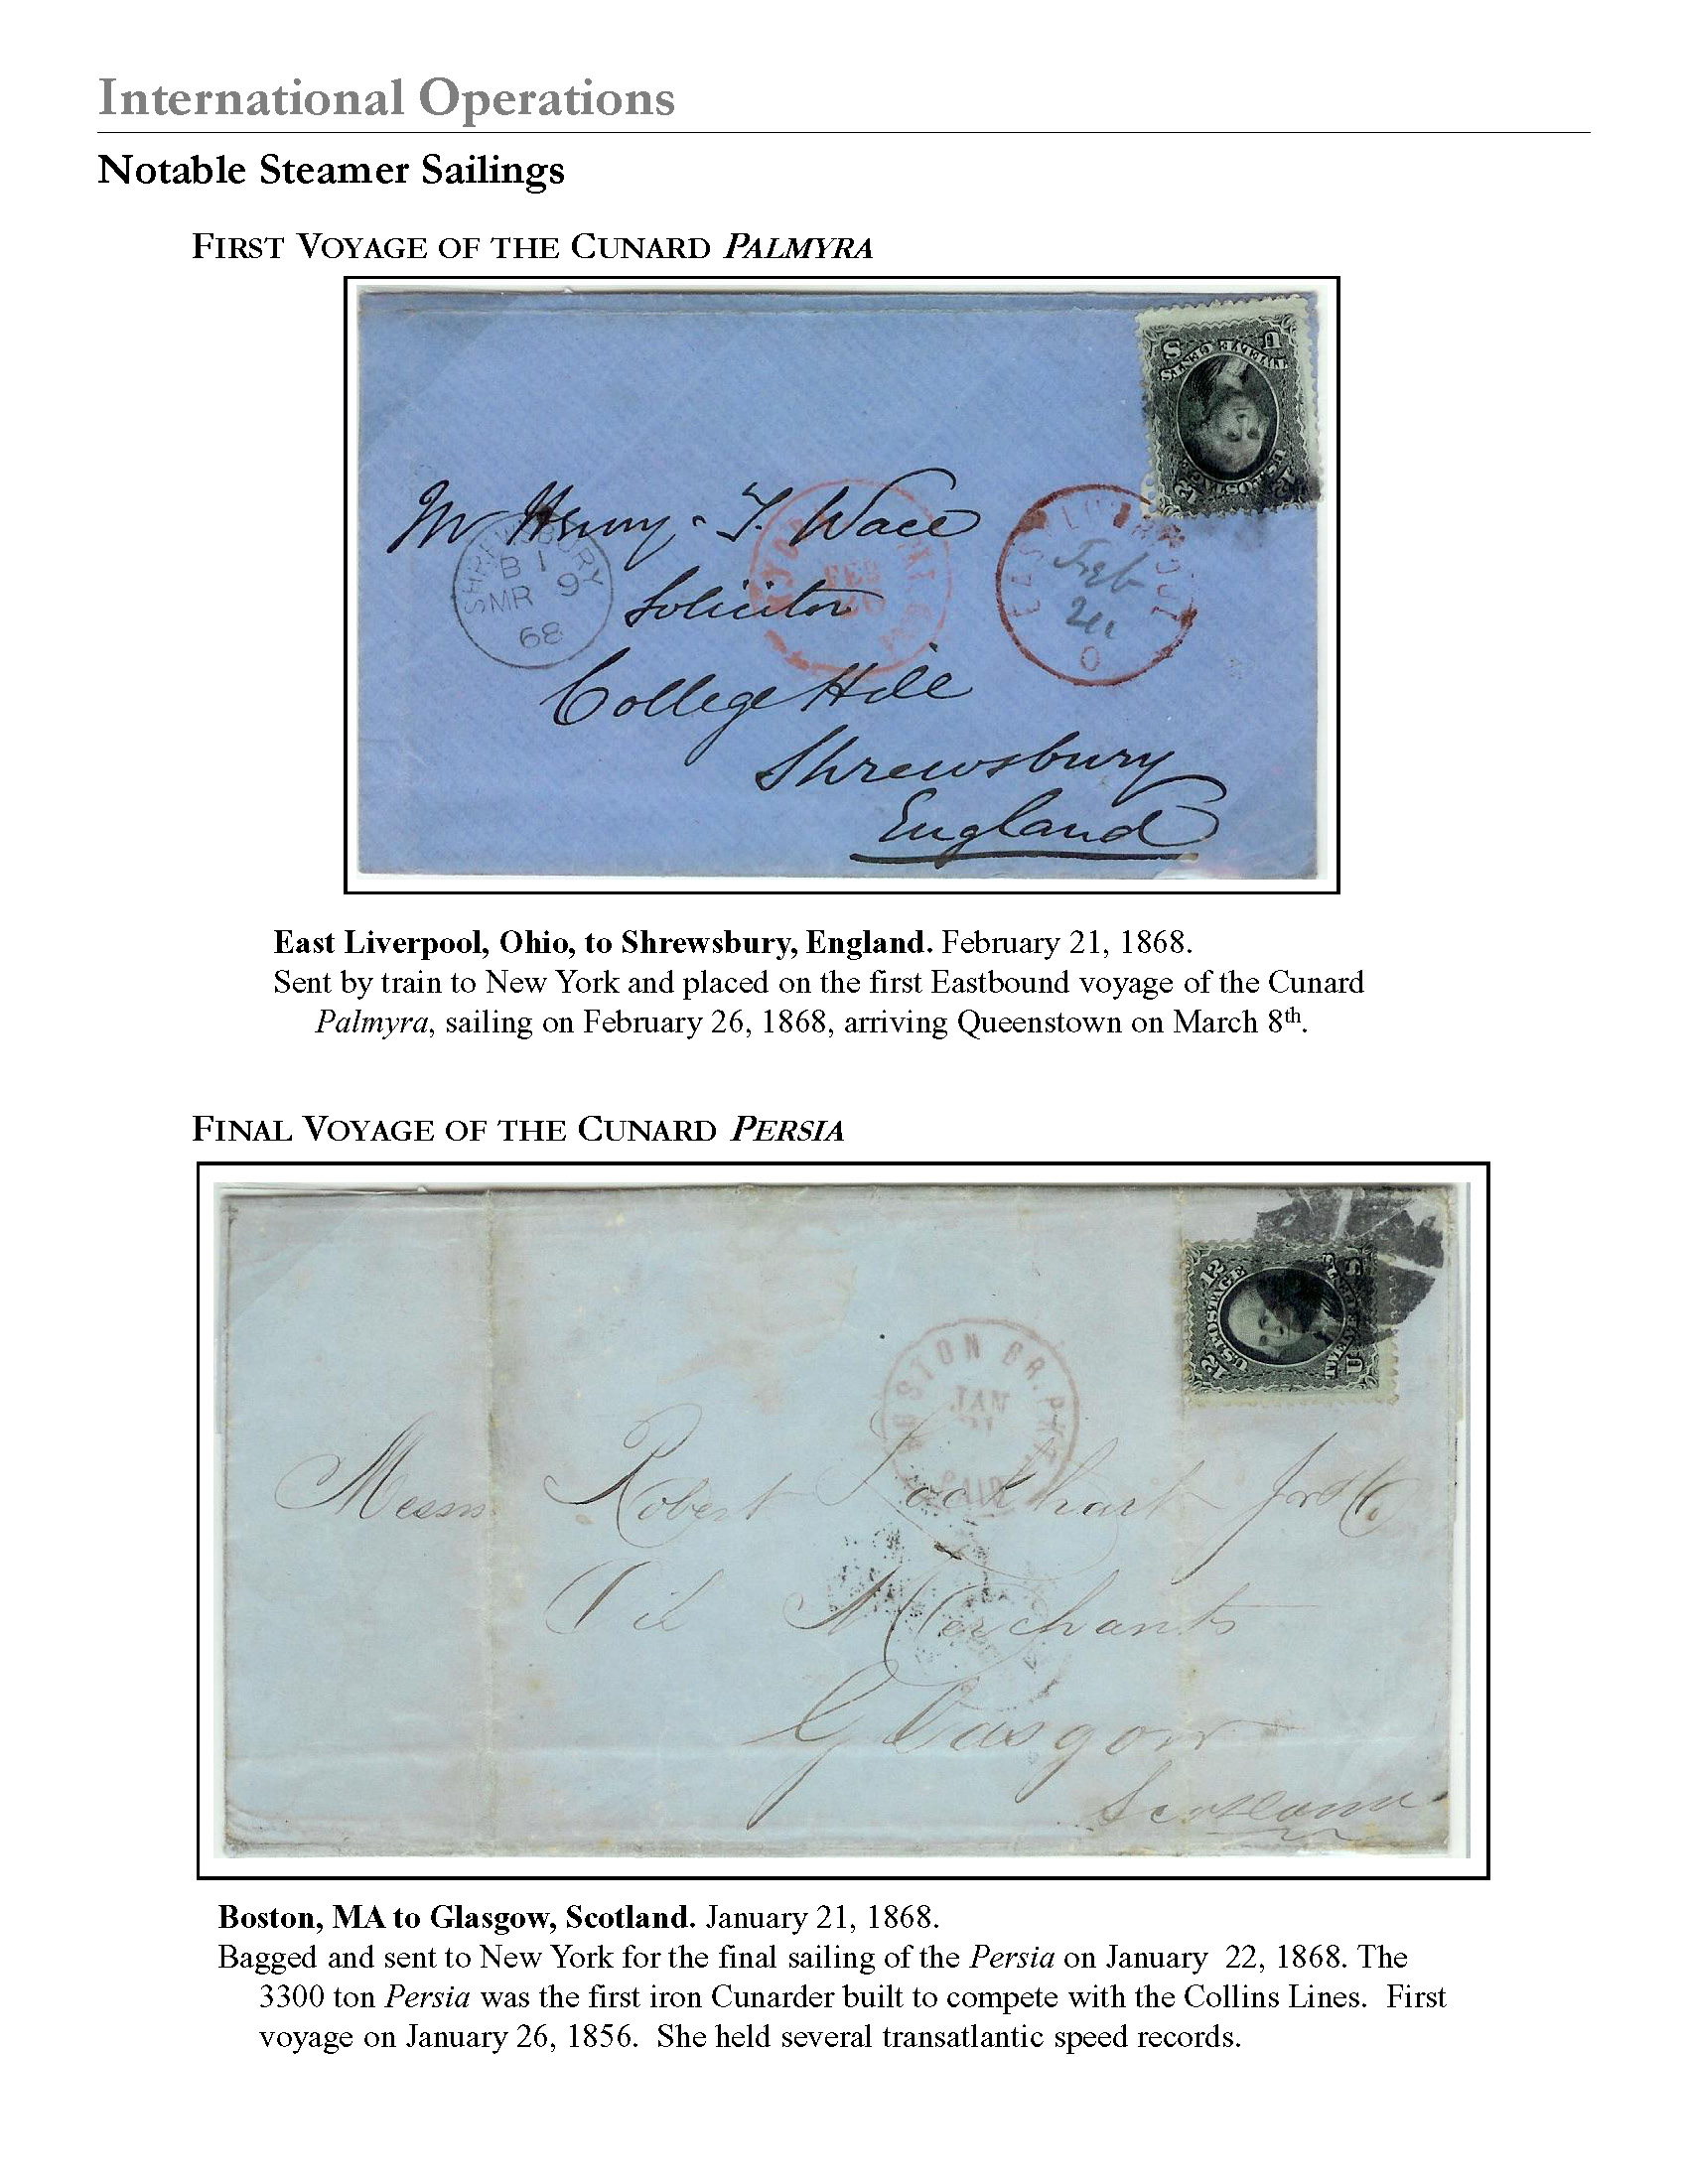 International Operations
Notable Steamer Sailings
FIRST VOYAGE OF THE CUNARD PALMYRA
U S
TWELVE CENTS
U.S. POSTAGE
12 12
Mr Henry T. Wace
SHREWSBURY
B 1
MR 9
68
FEB
EAST LIVERPOOL
Feb
21
O
Solicitor
College Hill
Shrewsbury
England
East Liverpool, Ohio, to Shrewsbury, England. February 21, 1868.
Sent by train to New York and placed on the first Eastbound voyage of the Cunard
Palmyra, sailing on February 26, 1868, arriving Queenstown on March 8th.
FINAL VOYAGE OF THE CUNARD PERSIA
12 12
U.S. POSTAGE
U S
BOSTON BR. PKT
JAN
21
PAID
Messrs Robert Lockhart Jr & Co.
Oil Merchants
Glasgow
Scotland
Boston, MA to Glasgow, Scotland. January 21, 1868.
Bagged and sent to New York for the final sailing of the Persia on January 22, 1868. The
3300 ton Persia was the first iron Cunarder built to compete with the Collins Lines. First
voyage on January 26, 1856. She held several transatlantic speed records.